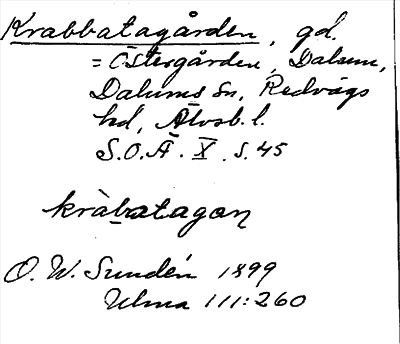 Krabbatagården, gd.
= Östergården, Dalum,
Dalums sn, Redvägs
hd, Älvsb. l.
S.O.Ä. X. s. 45
kràbatagaṇ
O. W. Sundén 1899
Ulma 111:260